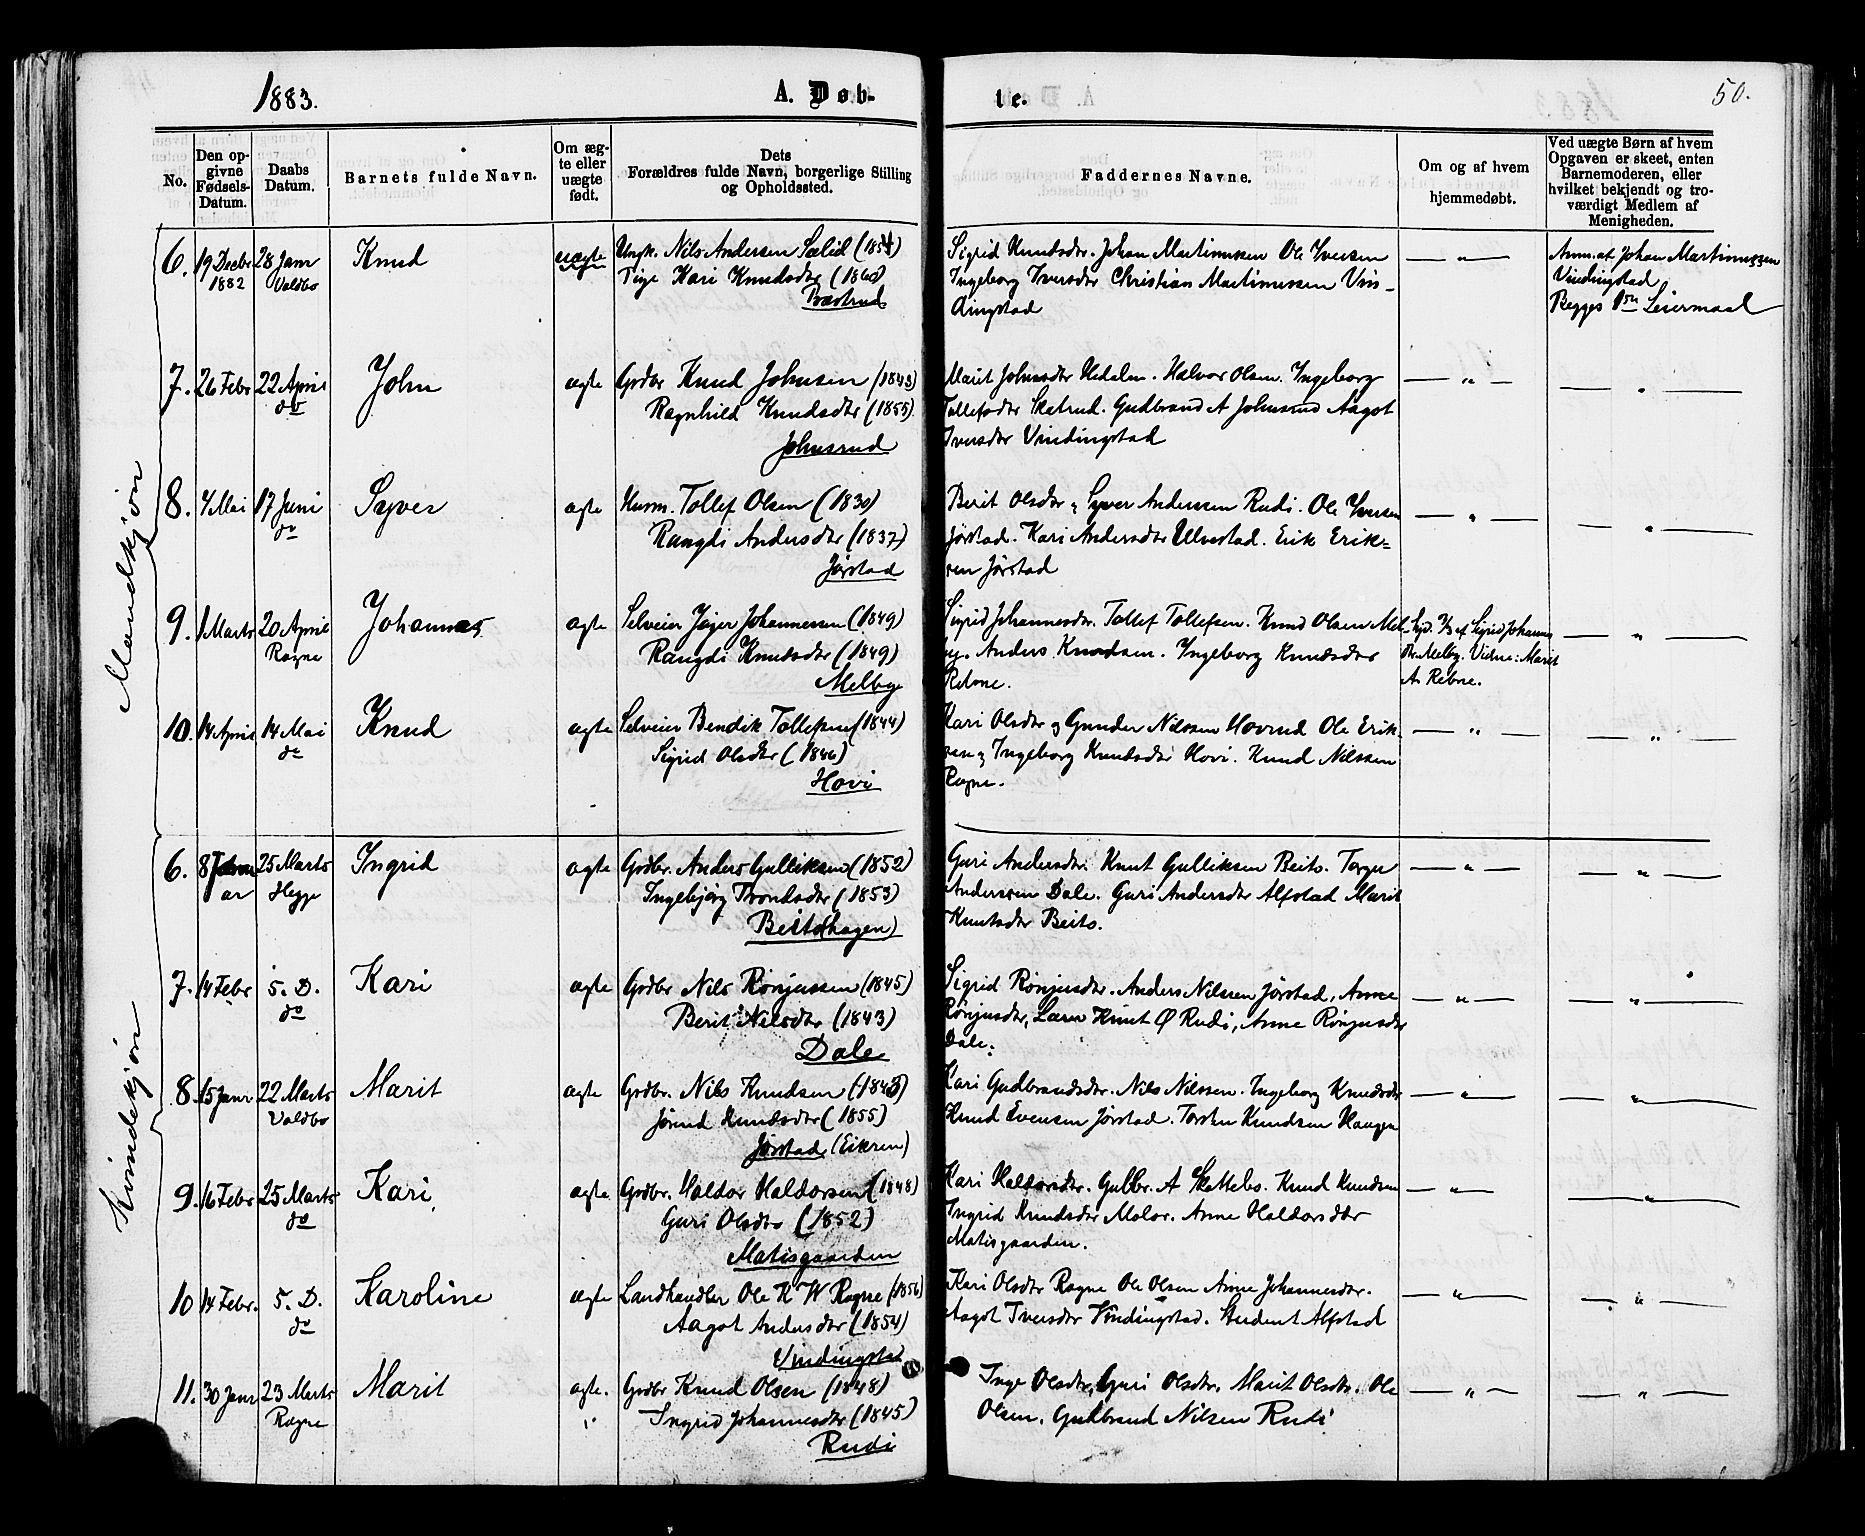 1883.
A. Døb-
te.
50.
No.
Den opgivne Fødsels-Datum.
Daabs Datum.
Barnets fulde Navn.
Om ægte eller uægte født.
Dets Forældres fulde Navn, borgerlige Stilling og Opholdssted.
Faddernes Navne.
Om og af hvem hjemmedøbt.
Ved uægte Børn af hvem Opgaven er skeet, enten Barnemoderen, eller hvilket bekjendt og troværdigt Medlem af Menigheden.
Mandkjøn
6. 19 Decbr 28 Janr Knud uægte Ungk. Nils Andersen Sælid (1854) Sigrid Knudsdtr. Johan Martinussen Ole Iversen — " — Anm. af Johan Martinussen
1882 Valdbo Pige Kari Knudsdtr (1860) Ingeborg Iversdtr Christian Martinussen Vin- Vindingstad
dingstad Begges 1ste Leiermaal
7. 26 Febr 22 April John ægte Grdbr Knud Johnsen (1843) Marit Johnsdtr Hedalen. Halvor Olsen. Ingeborg — " — — " —
do Ragnhild Knudsdtr (1855) Tollefsdtr Skatrud. Gudbrand A Johnsrud Aagot
Johnsrud Iversdtr Vindingstad
8. 4 Mai 17 Juni Syver ægte Husm. Tollef Olsen (1830) Berit Olsdtr & Syver Andersen Rudi. Ole Iversen — " — — " —
do Rangdi Andersdtr (1837) Jørstad. Kari Andersdtr Ulvestad. Erik Erik-
Jørstad sen Jørstad
9. 1 Marts 20 April Johannes ægte Selveier Jøger Johannessen (1849) Sigrid Johannesdtr. Tollef Tollefsen. Knud Olsen Mel- af Sigrid Johannes — " —
Rogne Rangdi Knudsdtr (1849) by. Anders Knudsen. Ingeborg Knudsdtr dtr Melby. Vidne: Marit
Melby Rebne. A. Rebne.
10. 14 April 14 Mai Knud ægte Selveier Bendik Tollefsen (1844) Kari Olsdtr & Gunder Nilssen Hovrud Ole Erik- — " — — " —
do Sigrid Olsdtr (1846) sen & Ingeborg Knudsdtr Hovi. Knud Nilssen
Hovi Rogne.
Kvindekjøn
6. 8 Janu 25 Marts Ingrid ægte Grdbr. Anders Gulliksen (1852) Guri Andersdtr. Knut Gulliksen Beito. Torger — " — — " —
ar Hegge Ingebjørg Trondsdtr (1853) Anderssen Dale. Guri Andersdtr Alfstad Marit
Beito (hagen) Knutsdtr Beito.
7. 14 Febr 5. D. Kari ægte Grdbr Nils Rønjussen (1845) Sigrid Rønjusdtr. Anders Nilssen Jørstad, Anne — " — — " —
do Berit Nilsdtr (1843) Rønjusdtr, Lærer Knut Ø Rudi, Anne Rønjusdtr
Dale Dale.
8. 15 Janr 22 Marts Marit ægte Grdbr. Nils Knudsen (1843) Kari Gudbrandsdtr. Nils Nilssen. Ingeborg Knudsdtr — " — — " —
Valdbo Jørand Knudsdtr (1855) Knud Evensen Jørstad. Torsten Knudsen Haugen
Jørstad (Eikren)
9. 16 Febr 25 Marts Kari ægte Grdbr. Haldor Haldorsen (1848) Kari Haldorsdtr. Gulbr. A Skattebo. Knud Knudsen — " — — " —
do Guri Olsdtr (1852) Ingrid Knudsdtr Moløk. Anne Haldorsdtr
Matisgaarden Matisgaarden.
10 14 Febr. 5. D. Karoline ægte Landhandler Ole K W Rogne (1856) Kari Olsdtr Rogne Ole Olsen Anne Johannesdtr. — " — — " —
do Aagot Andersdtr (1854) Aagot Iversdtr Vindingstad. Student Alfstad
Vindingstad
11. 30 Janr 23 Marts Marit ægte. Grdbr Knud Olsen (1848) Inge Olsdtr, Guri Olsdtr, Marit Olsdtr. Ole — " — — " —
Rogne Ingrid Johannesdtr (1845) Olsen. Gudbrand Nilsen Rudi
Rudi